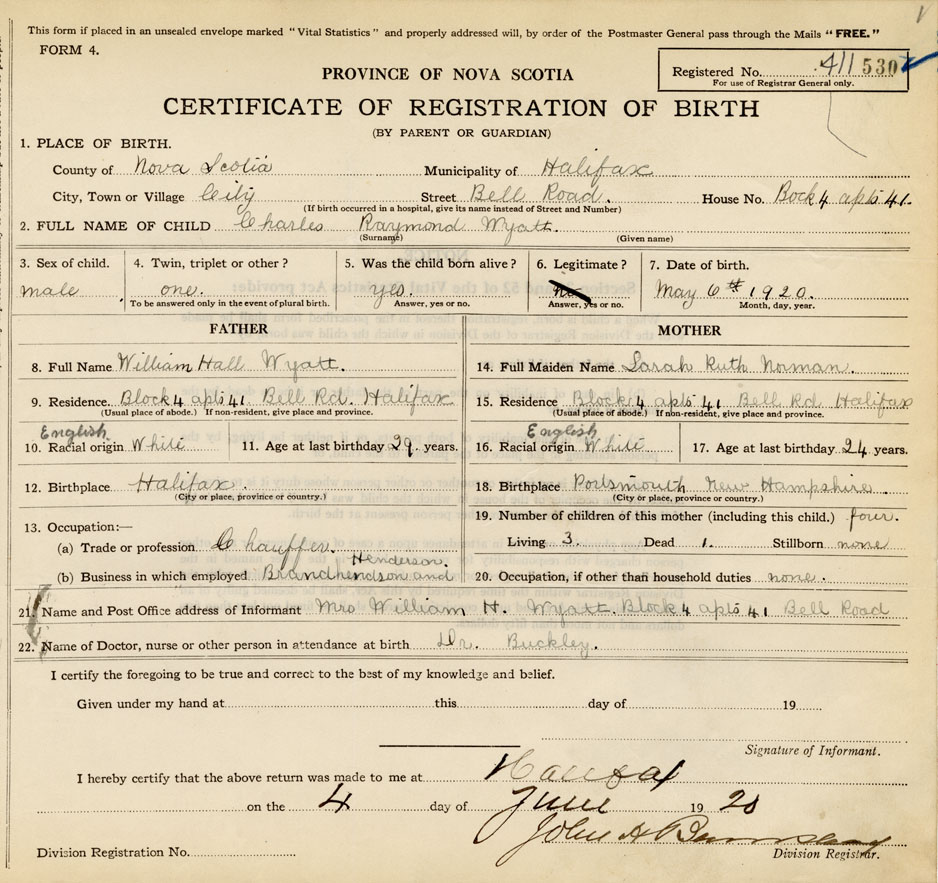 This form if placed in an unsealed envelope marked "Vital Statistics" and properly addressed will, by order of the Postmaster General pass through the Mails "FREE."
FORM 4.
Registered No. 411 530
For use of Registrar General only.
PROVINCE OF NOVA SCOTIA
CERTIFICATE OF REGISTRATION OF BIRTH
(BY PARENT OR GUARDIAN)
1. PLACE OF BIRTH.
County of Nova Scotia Municipality of Halifax
City, Town or Village City Street Bell Road. House No. Bock 4 apts 41.
(If birth occurred in a hospital, give its name instead of Street and Number)
2. FULL NAME OF CHILD Charles Raymond Wyatt.
(Surname) (Given name)
3. Sex of child. 4. Twin, triplet or other? 5. Was the child born alive? 6. Legitimate? 7. Date of birth.
male one. yes. no May 6th 1920.
To be answered only in the event of plural birth. Answer, yes or no. Answer, yes or no. Month, day, year.
FATHER MOTHER
8. Full Name William Hall Wyatt. 14. Full Maiden Name Sarah Ruth Norman.
9. Residence. Block 4 apts 41. Bell Rd. Halifax 15. Residence Block 4 apts 41 Bell Rd Halifax
(Usual place of abode.) If non-resident, give place and province. (Usual place of abode.) If non-resident, give place and province.
English English
10. Racial origin White 11. Age at last birthday 29. years. 16. Racial origin White 17. Age at last birthday 24 years.
12. Birthplace Halifax. 18. Birthplace Portsmouth New Hampshire
(City or place, province or country.) (City or place, province or country.)
13. Occupation:— 19. Number of children of this mother (including this child.) four.
(a) Trade or profession Chauffer. Living 3. Dead 1. Stillborn none
Henderson.
(b) Business in which employed Brandhendson and 20. Occupation, if other than household duties none.
21. Name and Post Office address of Informant Mrs William H. Wyatt. Block 4 apts 41 Bell Road
22. Name of Doctor, nurse or other person in attendance at birth Dr. Buckley.
I certify the foregoing to be true and correct to the best of my knowledge and belief.
Given under my hand at this day of 19
Signature of Informant.
I hereby certify that the above return was made to me at Halifax
on the 4 day of June 1920
John A
Division Registration No. Division Registrar.